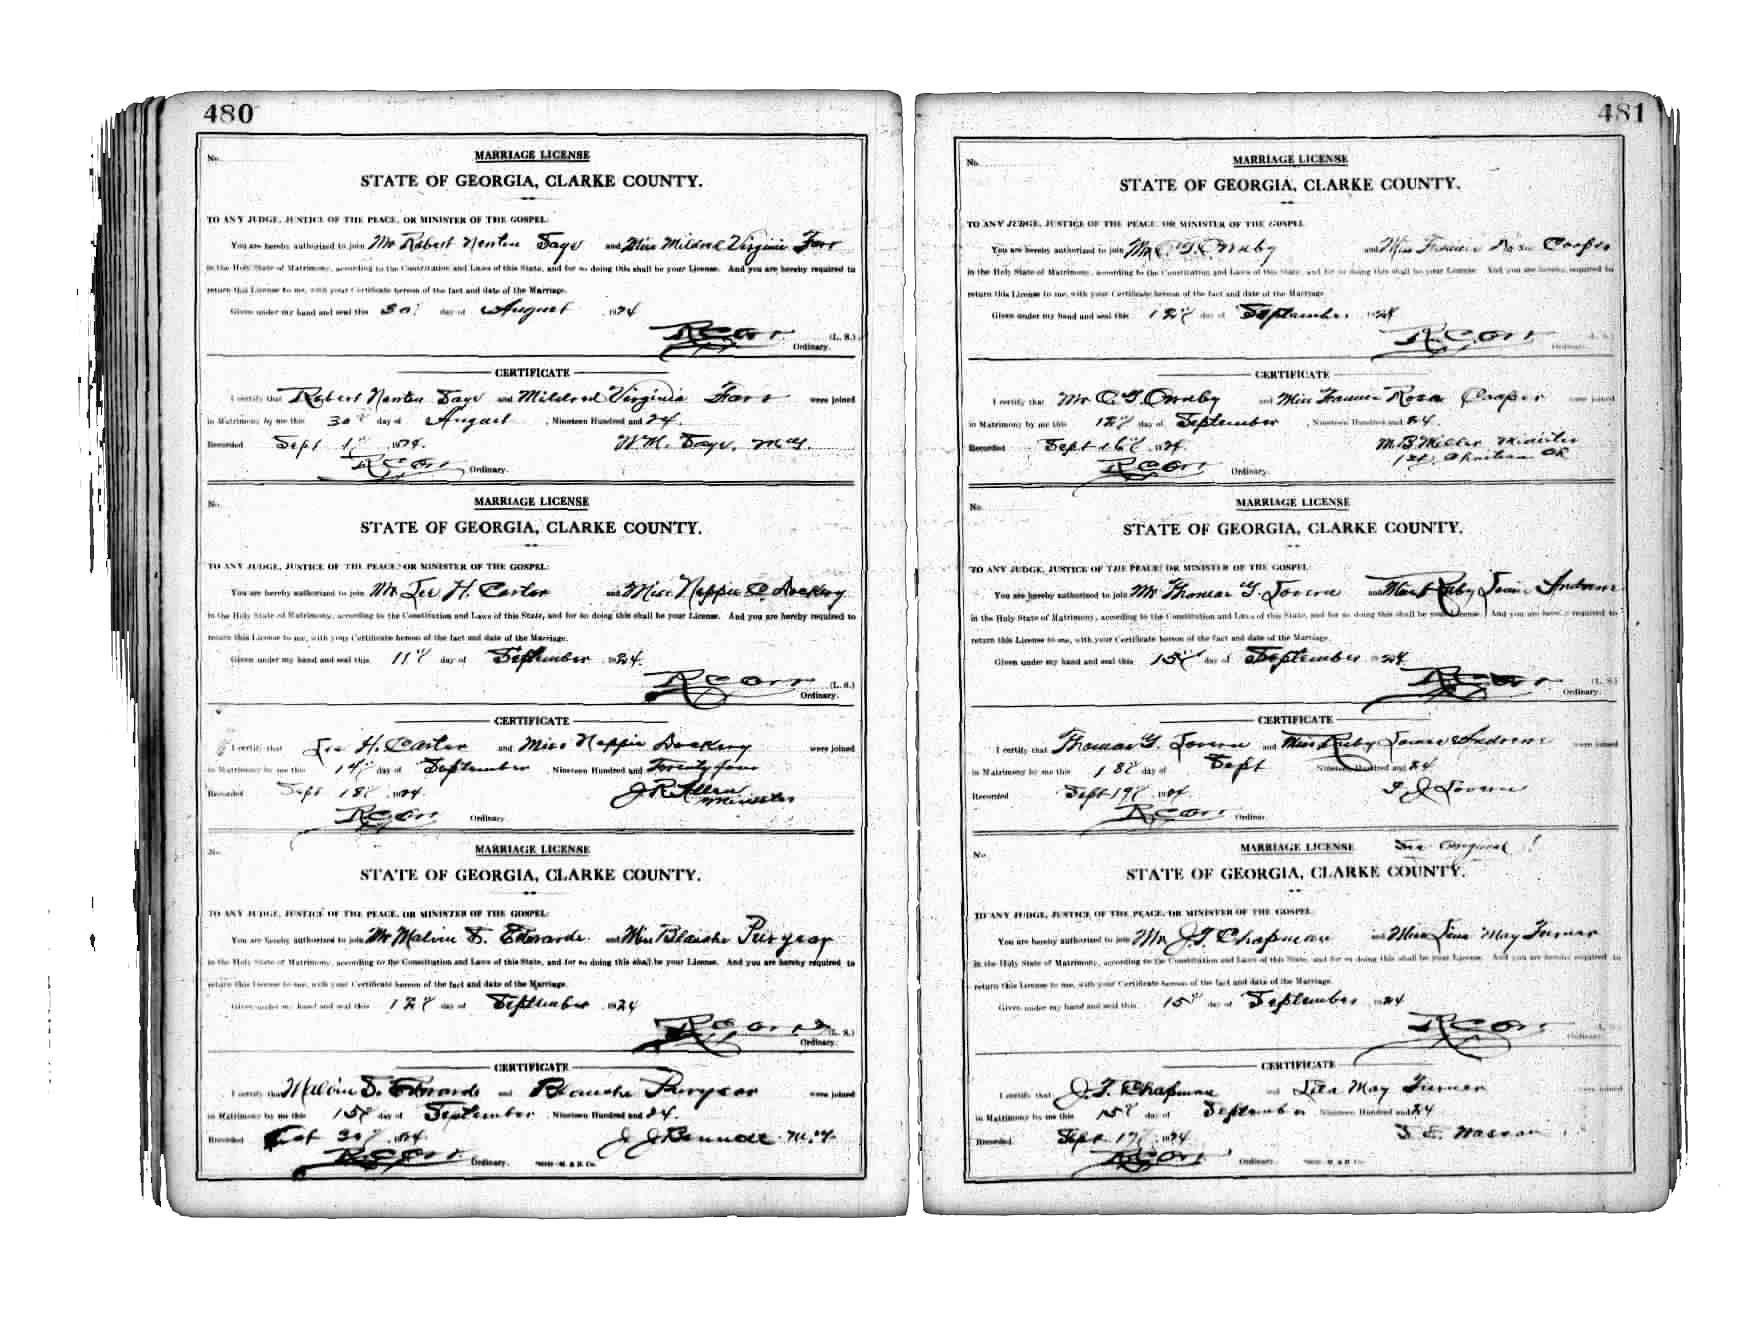 480
No.
MARRIAGE LICENSE
STATE OF GEORGIA, CLARKE COUNTY.
TO ANY JUDGE, JUSTICE OF THE PEACE, OR MINISTER OF THE GOSPEL:
You are hereby authorized to join Mr Robert Newton Saye and Miss Mildred Virginia Farr
in the Holy State of Matrimony, according to the Constitution and Laws of this State, and for so doing this shall be your License. And you are hereby required to
return this License to me, with your Certificate hereon of the fact and date of the Marriage.
Given under my hand and seal this 30 day of August 1924
R C Orr (L. S.)
Ordinary.
CERTIFICATE
I certify that Robert Newton Saye and Mildred Virginia Farr were joined
in Matrimony by me this 30 day of August, Nineteen Hundred and 24.
Recorded Sept 1 1924. W. M. Saye, M G.
R C Orr Ordinary.
No.
MARRIAGE LICENSE
STATE OF GEORGIA, CLARKE COUNTY.
TO ANY JUDGE, JUSTICE OF THE PEACE, OR MINISTER OF THE GOSPEL:
You are hereby authorized to join Mr Lee H. Carter and Miss Neppie C. Dockery
in the Holy State of Matrimony, according to the Constitution and Laws of this State, and for so doing this shall be your License. And you are hereby required to
return this License to me, with your Certificate hereon of the fact and date of the Marriage.
Given under my hand and seal this 11 day of September 1924.
R C Orr (L. S.)
Ordinary.
CERTIFICATE
I certify that Lee H. Carter and Miss Neppie Dockery were joined
in Matrimony by me this 14 day of September, Nineteen Hundred and Twenty four
Recorded Sept 18 1924. J R Allen
Minister
R C Orr Ordinary.
No.
MARRIAGE LICENSE
STATE OF GEORGIA, CLARKE COUNTY.
TO ANY JUDGE, JUSTICE OF THE PEACE, OR MINISTER OF THE GOSPEL:
You are hereby authorized to join Mr Malvin S. Edwards and Miss Blanche Puryear
in the Holy State of Matrimony, according to the Constitution and Laws of this State, and for so doing this shall be your License. And you are hereby required to
return this License to me, with your Certificate hereon of the fact and date of the Marriage.
Given under my hand and seal this 12 day of September 1924
R C Orr (L. S.)
Ordinary.
CERTIFICATE
I certify that Malvin S. Edwards and Blanche Puryear were joined
in Matrimony by me this 15 day of September, Nineteen Hundred and 24.
Recorded Oct 30 1924. J J Bennett M. G.
R C Orr Ordinary.
481
No.
MARRIAGE LICENSE
STATE OF GEORGIA, CLARKE COUNTY.
TO ANY JUDGE, JUSTICE OF THE PEACE, OR MINISTER OF THE GOSPEL
You are hereby authorized to join Mr and Miss Cooper
in the Holy State of Matrimony, according to the Constitution and Laws of this State, and for so doing this shall be your License. And you are hereby required to
return this License to me, with your Certificate hereon of the fact and date of the Marriage
Given under my hand and seal this 12 day of September 1924
R. C. Orr (L. S.)
Ordinary.
CERTIFICATE
I certify that Mr and Miss Rosa Cooper were joined
in Matrimony by me this 12 day of September, Nineteen Hundred and 24.
Recorded Sept 16 1924. M. B. Miller Minister
1st. Christian Ch
R C Orr Ordinary.
No.
MARRIAGE LICENSE
STATE OF GEORGIA, CLARKE COUNTY.
TO ANY JUDGE, JUSTICE OF THE PEACE, OR MINISTER OF THE GOSPEL
You are hereby authorized to join Mr Thomas G. Lovern and Miss Ruby Andrews
in the Holy State of Matrimony, according to the Constitution and Laws of this State, and for so doing this shall be your License. And you are hereby required to
return this License to me, with your Certificate hereon of the fact and date of the Marriage.
Given under my hand and seal this 15 day of September 1924
R C Orr (L. S.)
Ordinary.
CERTIFICATE
I certify that Thomas G. Lovern and Miss Ruby Andrews were joined
in Matrimony by me this 18 day of Sept Nineteen Hundred and 24
Recorded Sept 19 1924. J Lovern
R C Orr Ordinary.
No.
MARRIAGE LICENSE See Original !
STATE OF GEORGIA, CLARKE COUNTY.
TO ANY JUDGE, JUSTICE OF THE PEACE, OR MINISTER OF THE GOSPEL:
You are hereby authorized to join Mr. J. T. Chapman and Miss May Turner
in the Holy State of Matrimony, according to the Constitution and Laws of this State, and for so doing this shall be your License. And you are hereby required to
return this License to me, with your Certificate hereon of the fact and date of the Marriage.
Given under my hand and seal this 15 day of September 1924
R C Orr (L. S.)
Ordinary.
CERTIFICATE
I certify that J. T. Chapman and Lita May Turner were joined
in Matrimony by me this 15 day of September Nineteen Hundred and 24
Recorded Sept 17 1924
R C Orr Ordinary.